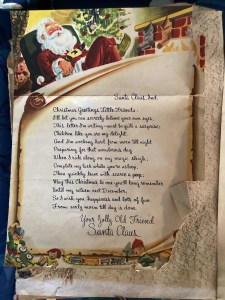 Santa Claus, Ind.
Christmas Greetings Little Friends:
I'll bet you can scarcely believe your own eyes,
This letter I'm writing must be quite a surprise;
Children like you are my delight,
And I'm working hard from morn till night
Preparing for that wonderous day
When I ride along on my magic sleigh,
Complete my task while you're asleep,
Then quickly leave with scarce a peep;
May this Christmas be one you'll long remember
Until my return next December,
So I wish you happiness and lots of fun
From early morn till day is done.
Your Jolly Old Friend
Santa Claus